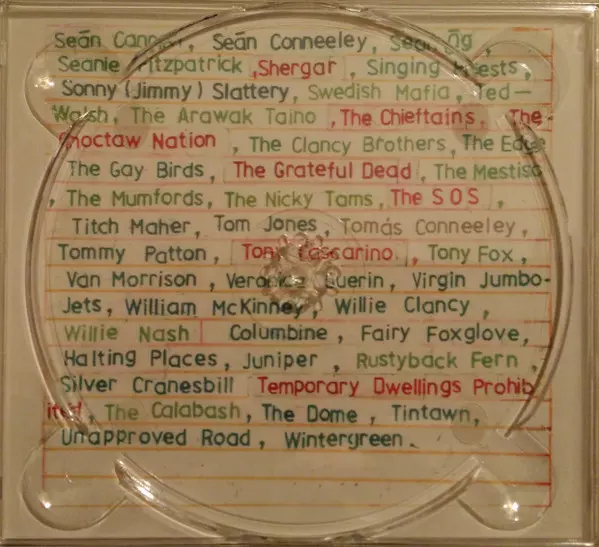 Seān Cannon, Seān Conneeley, Seān Ōg,
Seanie Fitzpatrick, Shergar, Singing Priests,
Sonny (Jimmy) Slattery, Swedish Mafia, Ted-
Walsh, The Arawak Taino, The Chieftains, The-
Choctaw Nation, The Clancy Brothers, The Edge
The Gay Birds, The Grateful Dead, The Mestiso
, The Mumfords, The Nicky Tams, The S O S,
Titch Maher, Tom Jones, Tomás Conneeley,
Tommy Patton, Tony Cascarino, Tony Fox,
Van Morrison, Veronica Guerin, Virgin Jumbo-
Jets, William McKinney, Willie Clancy,
Willie Nash Columbine, Fairy Foxglove,
Halting Places, Juniper, Rustyback Fern,
Silver Cranesbill Temporary Dwellings Prohib
ited, The Calabash, The Dome, Tintawn,
Unapproved Road, Wintergreen.